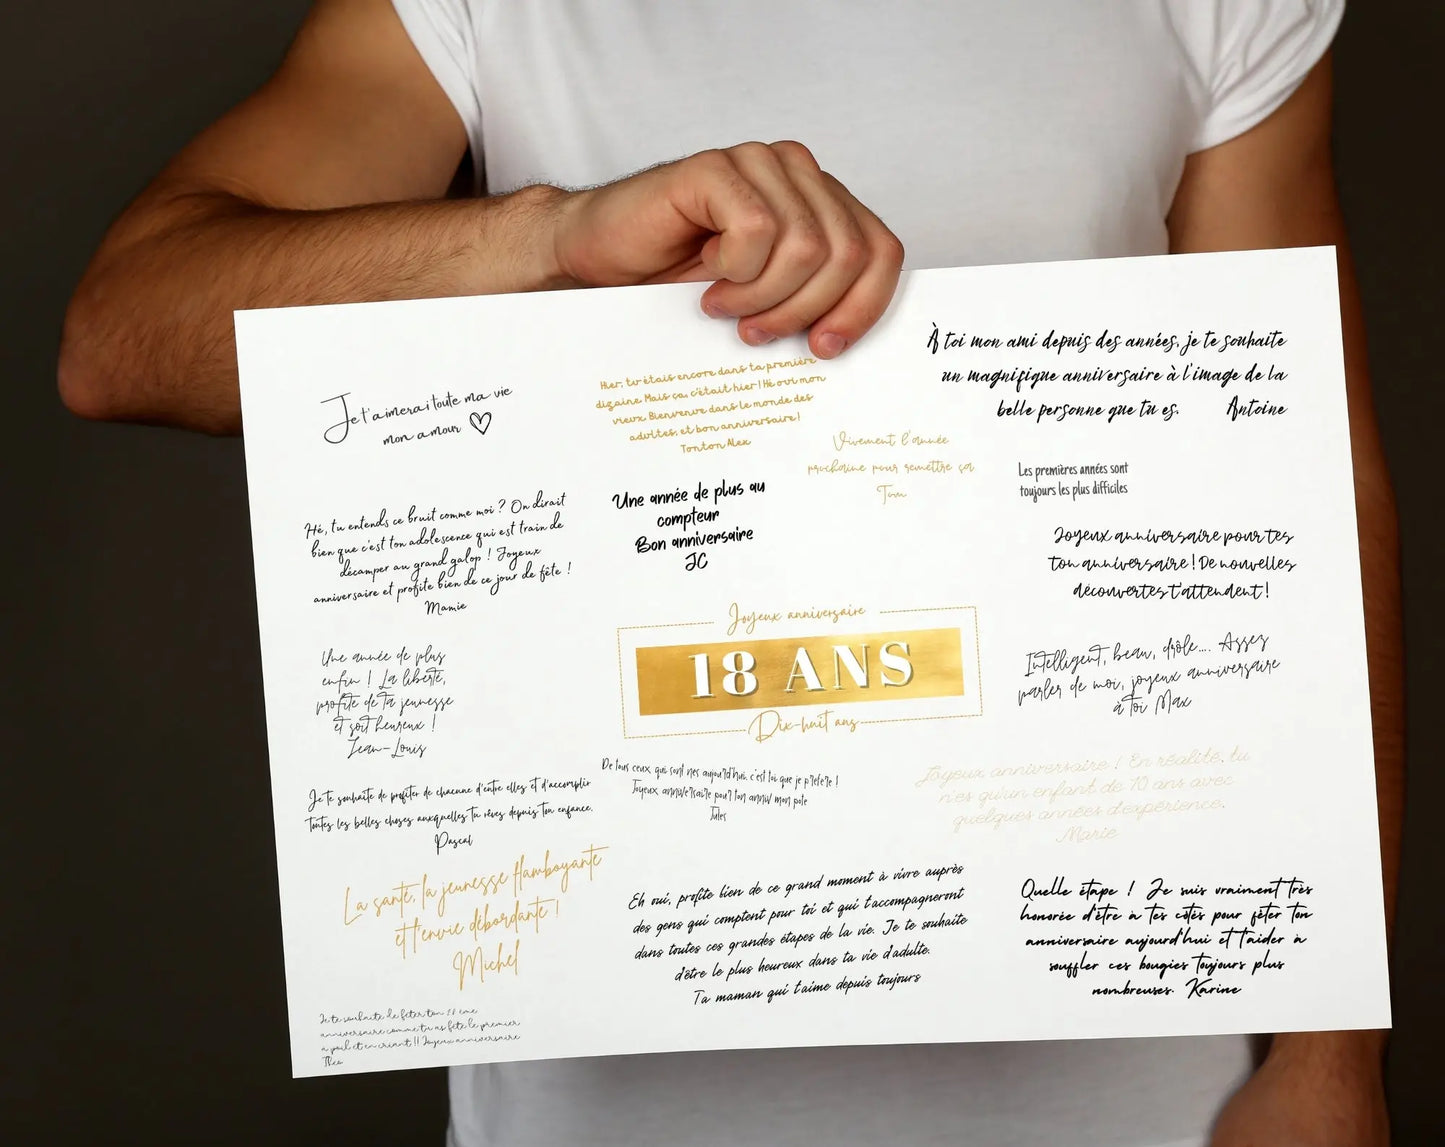 Je t'aimerai toute ma vie
mon amour
Hier, tu étais encore dans ta première
dizaine. Mais ça, c'était hier ! Hé oui mon
vieux. Bienvenue dans le monde des
adultes, et bon anniversaire !
Tonton Alex
À toi mon ami depuis des années, je te souhaite
un magnifique anniversaire à l'image de la
belle personne que tu es. Antoine
Vivement l'année
prochaine pour remettre ça
Tom
Les premières années sont
toujours les plus difficiles
Hé, tu entends ce bruit comme moi ? On dirait
bien que c'est ton adolescence qui est train de
décamper au grand galop ! Joyeux
anniversaire et profite bien de ce jour de fête !
Mamie
Une année de plus au
compteur
Bon anniversaire
JC
Joyeux anniversaire pour tes
ton anniversaire ! De nouvelles
découvertes t'attendent !
Joyeux anniversaire
18 ANS
Dix-huit ans
Une année de plus
enfin ! La liberté,
profite de ta jeunesse
et soit heureux !
Jean-Louis
Intelligent, beau, drôle.... Assez
parler de moi, joyeux anniversaire
à toi Max
De tous ceux, qui sont nes aujourd'hui. c'est toi que je prefere !
Joyeux anniversaire pour ton anniv mon pote
Jules
Joyeux anniversaire ! En réalité, tu
n'es qu'un enfant de 10 ans avec
quelques années d'expérience.
Marie
Je te souhaite de profiter de chacune d'entre elles et d'accomplir
toutes les belles choses auxquelles tu rêves depuis ton enfance.
Pascal
La santé, la jeunesse flamboyante
et l'envie débordante !
Michel
Eh oui, profite bien de ce grand moment à vivre auprès
des gens qui comptent pour toi et qui t'accompagneront
dans toutes ces grandes étapes de la vie. Je te souhaite
d'être le plus heureux dans ta vie d'adulte.
Ta maman qui t'aime depuis toujours
Quelle étape ! Je suis vraiment très
honorée d'être à tes côtés pour fêter ton
anniversaire aujourd'hui et t'aider à
souffler ces bougies toujours plus
nombreuses. Karine
Je te souhaite de feter ton 18 eme
anniversaire comme tu as fete le premier
a poil et en criant !! Joyeux anniversaire
Theo